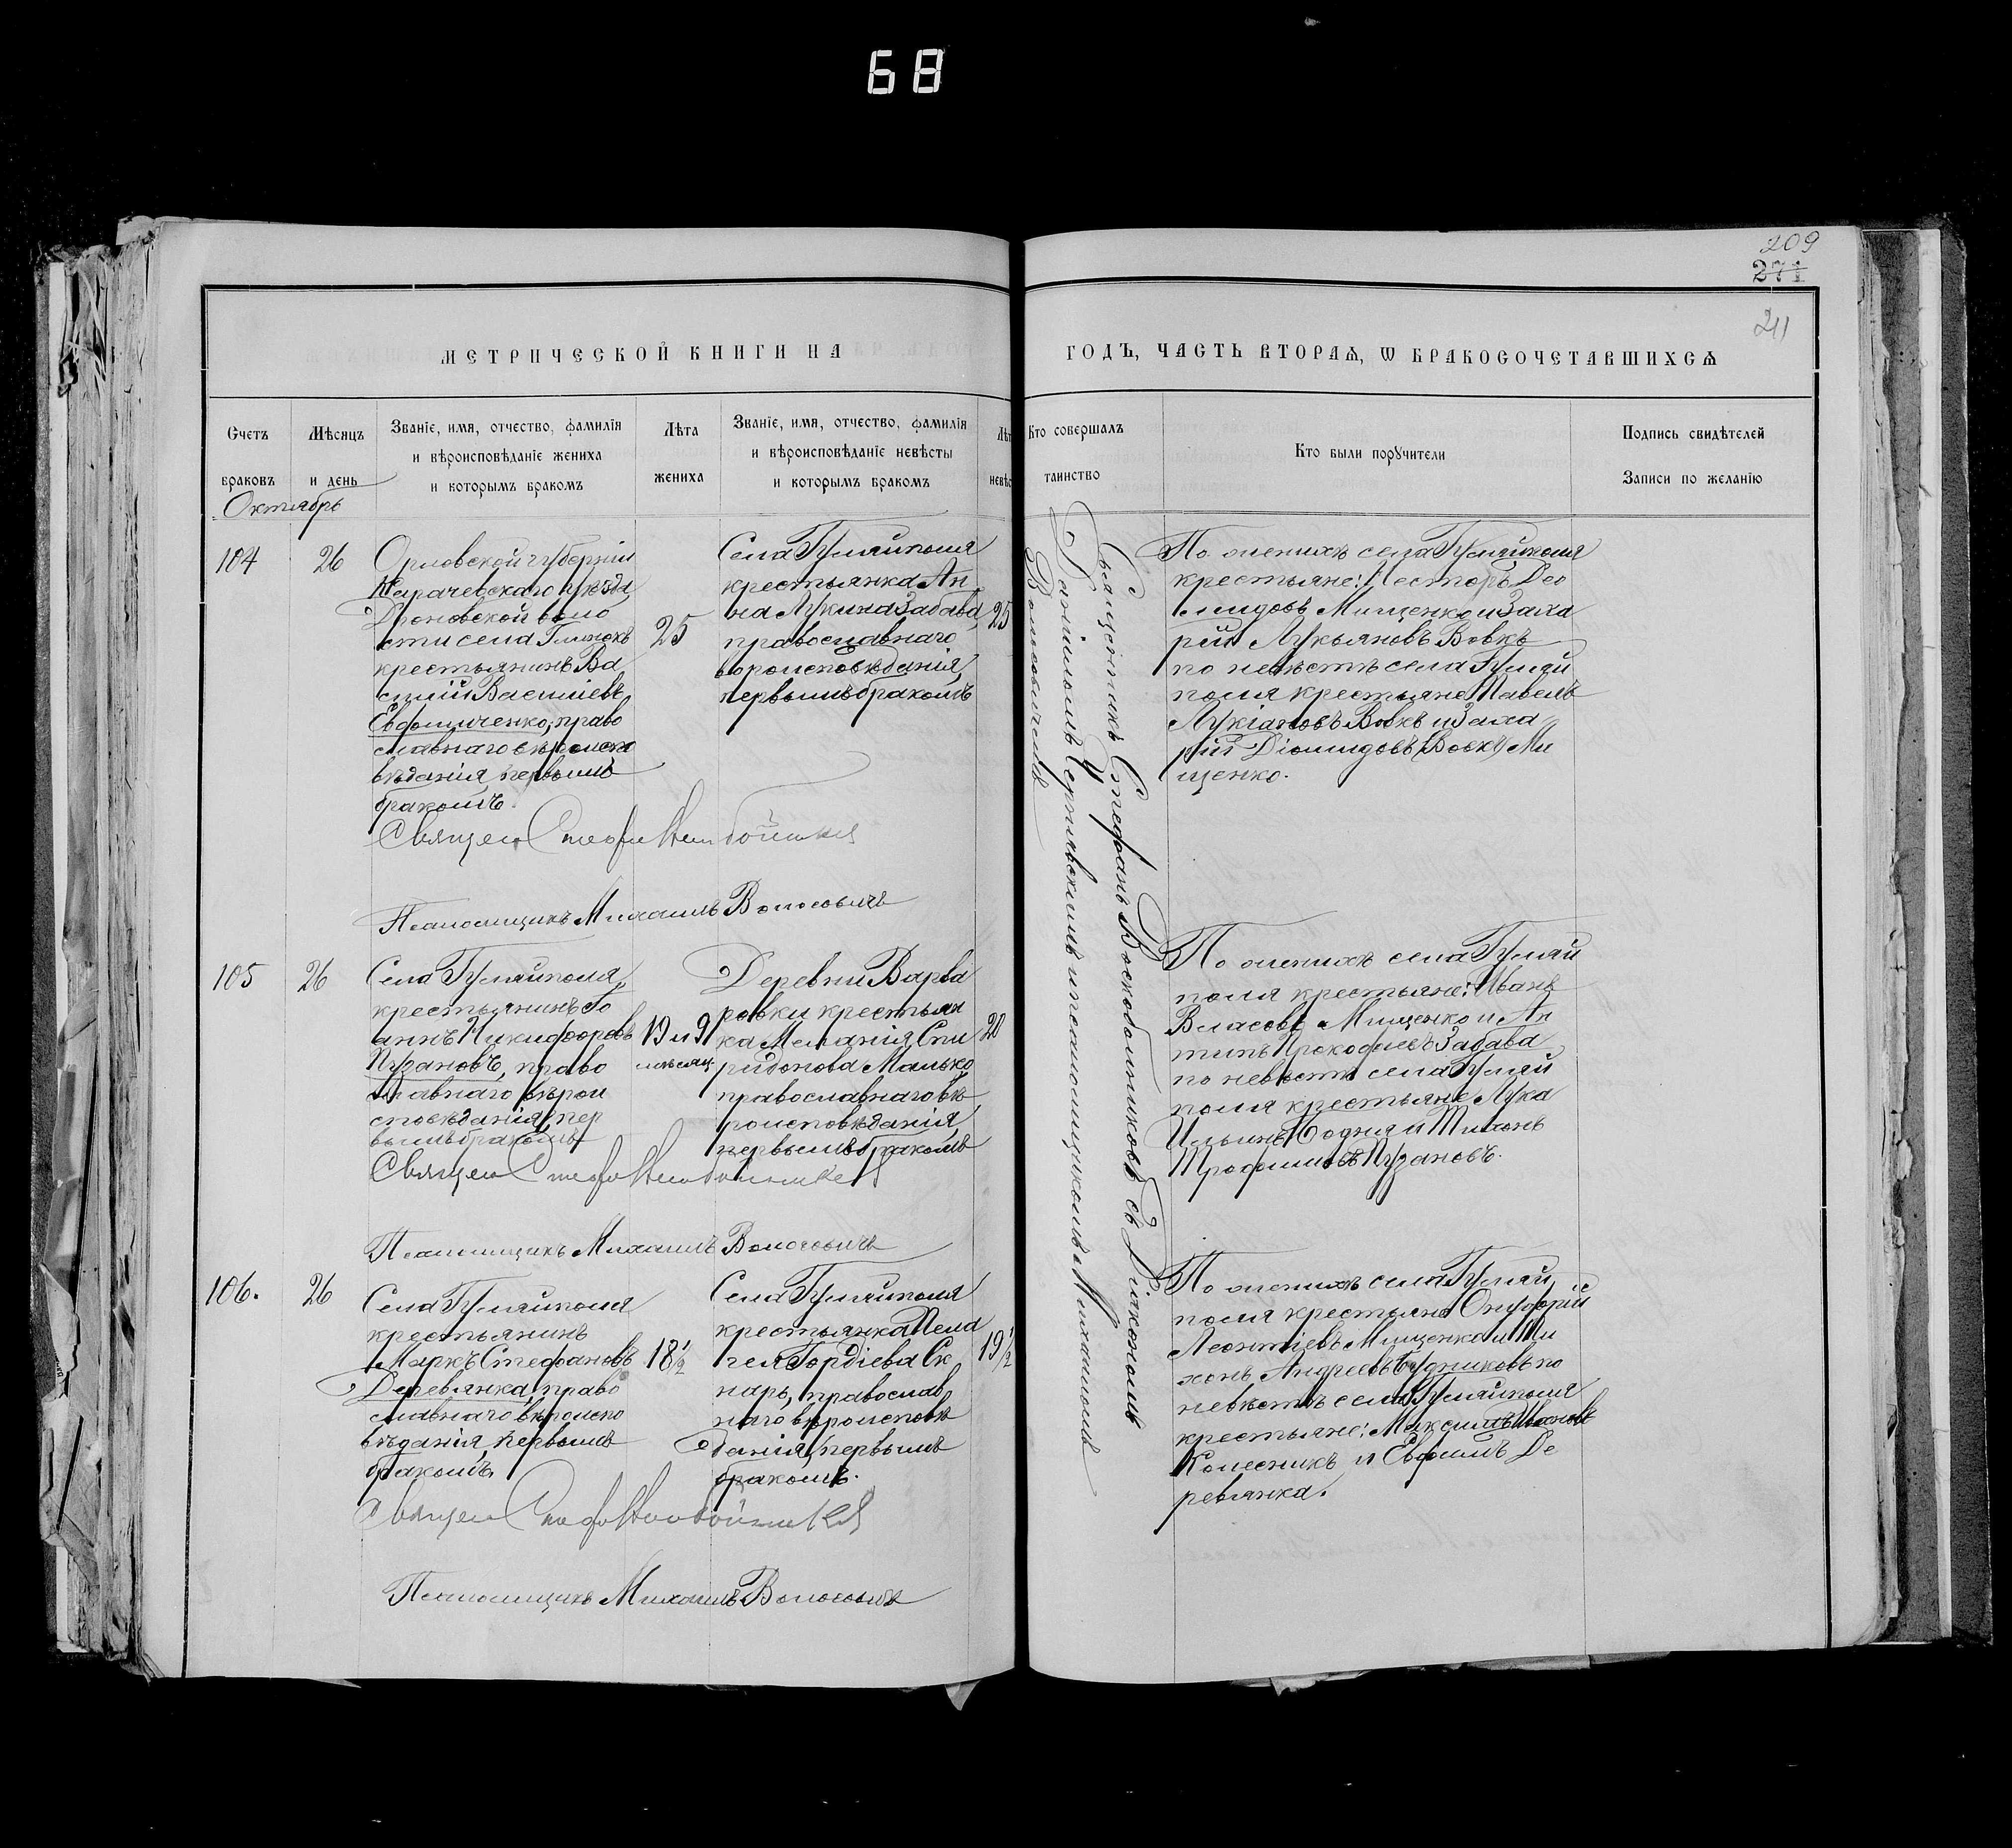 68
209
271
211
МЕТРИЧЕСКОЙ КНИГИ НА
ГОДЪ, ЧАСТЬ ВТОРАѦ, Ѡ БРАКОСОЧЕТАВШИХСѦ
Счетъ браковъ
Мѣсяцъ и день
Званіе, имя, отчество, фамилія
и вѣроисповѣданіе жениха
и которымъ бракомъ
Лѣта жениха
Званіе, имя, отчество, фамилія
и вѣроисповѣданіе невѣсты
и которымъ бракомъ
Кто совершалъ
таинство
Кто были поручители
Подпись свидѣтелей
Записи по желанію
Октябрь
104
26
Орловской губерніи
Карачевскаго уѣзда
Дроновской воло
сти села
крестьянинъ Ва
силій Васильевъ
Евдомиченко, право
славнаго вѣроиспо
вѣданія, первымъ
бракомъ.
25
Села Гуляйполя
крестьянка Ан
на Лукина Забава,
православнаго
вѣроисповѣданія,
первымъ бракомъ
25
Священникъ Стефанъ Воскобойниковъ съ Діакономъ
Даніиломъ и псаломщикомъ Михаиломъ
Волосовичемъ
По женихѣ села Гуляйполя
крестьяне: Несторъ Део
мидовъ Мищенко и Заха
рій Лукьяновъ Вовкъ
по невѣстѣ села Гуляй
поля крестьяне Павелъ
Лукіановъ Вовкъ и Заха
рій Діомидовъ (Вовкъ) Ми
щенко.
Псаломщикъ Михаилъ Волосовичъ
105
26
Села Гуляйполя,
крестьянинъ Іо
аннъ Никифоровъ
Пузановъ, право
славнаго вѣрои
сповѣданія, пер
вымъ бракомъ
19 и 9
мѣсяц
Деревни Варва
ровки крестьян
ка Меланія Спи
ридонова Малько
православнаго вѣ
роисповѣданія,
первымъ бракомъ
20
По женихѣ села Гуляй
поля крестьяне: Иванъ
Власовъ Мищенко и Ан
типъ Прокофіевъ Забава
по невѣстѣ села Гуляй
поля крестьяне Лука
Ильинъ и Тихонъ
Трофимовъ Пузановъ.
Псаломщикъ Михаилъ Волосовичъ
106.
26
Села Гуляйполя
крестьянинъ
Маркъ Стефановъ
Деревянка, право
славнаго вѣроиспо
вѣданія, первымъ
бракомъ.
18½
Села Гуляйполя
крестьянка Пела
гея Гордіева Ск
нарь, православ
наго вѣроисповѣ
данія, первымъ
бракомъ.
19½
По женихѣ села Гуляй
поля крестьяне Онуфрій
Леонтіевъ Мищенко и Ти
хонъ Андреевъ Будниковъ по
невѣстѣ села Гуляйполя
крестьяне: Максимъ Ивановъ
Колесникъ и Евфимъ Де
ревянка.
Псаломщикъ Михаилъ Волосовичъ